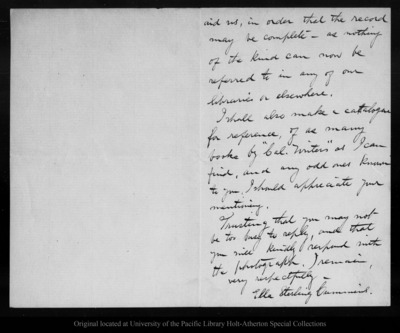 aid us, in order that the record
may be complete — as nothing
of the kind can now be
referred to in any of our
libraries or elsewhere.
I shall also make a catalogue
for reference, of as many
books by "Cal. Writers" as I can
find, and any odd ones known
to you, I should appreciate your
mentioning.
Trusting that you may not
be too busy to reply, and that
you will kindly respond with
the photograph. I remain,
very respectfully —
Ella Sterling Cummins.
Original located at University of the Pacific Library Holt-Atherton Special Collections